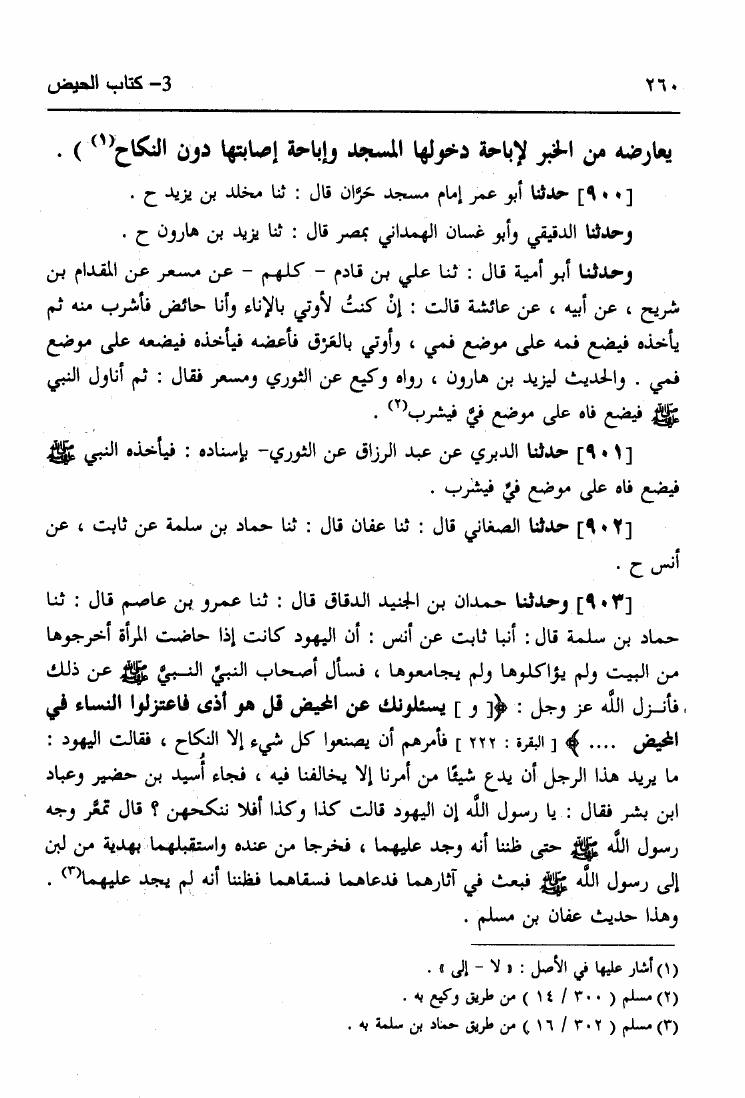 ٢٦٠
3- كتاب الحيض
يعارضه من الخبر لإباحة دخولها المسجد وإباحة إصابتها دون النكاح(١) ) .
[٩٠٠] حدثنا أبو عمر إمام مسجد حَرَّان قال : ثنا مخلد بن يزيد ح .
وحدثنا الدقيقي وأبو غسان الهمداني بمصر قال : ثنا يزيد بن هارون ح .
وحدثنا أبو أمية قال : ثنا علي بن قادم - كلهم - عن مسعر عن المقدام بن
شريح ، عن أبيه ، عن عائشة قالت : إنْ كنتُ لأوتي بالإناء وأنا حائض فأشرب منه ثم
يأخذه فيضع فمه على موضع فمي ، وأوتي بالعَرْق فأعضه فيأخذه فيضعه على موضع
فمي . والحديث ليزيد بن هارون ، رواه وكيع عن الثوري ومسعر فقال : ثم أناول النبي
ﷺ فيضع فاه على موضع فيَّ فيشرب(٢) .
[٩٠١] حدثنا الدبري عن عبد الرزاق عن الثوري- بإسناده : فيأخذه النبي ﷺ
فيضع فاه على موضع فيَّ فيشرب .
[٩٠٢] حدثنا الصغاني قال : ثنا عفان قال : ثنا حماد بن سلمة عن ثابت ، عن
أنس ح .
[٩٠٣] وحدثنا حمدان بن الجنيد الدقاق قال : ثنا عمرو بن عاصم قال : ثنا
حماد بن سلمة قال : أنبا ثابت عن أنس : أن اليهود كانت إذا حاضت المرأة أخرجوها
من البيت ولم يؤاكلوها ولم يجامعوها ، فسأل أصحاب النبيِّ النـبيَّ ﷺ عن ذلك
فأنـزل الله عز وجل : ﴿[ و ] يسئلونك عن المحيض قل هو أذى فاعتزلوا النساء في
المحيض .... ﴾ [ البقرة : ٢٢٢ ] فأمرهم أن يصنعوا كل شيء إلا النكاح ، فقالت اليهود :
ما يريد هذا الرجل أن يدع شيئًا من أمرنا إلا يخالفنا فيه ، فجاء أُسيد بن حضير وعباد
ابن بشر فقال : يا رسول الله إن اليهود قالت كذا وكذا أفلا ننكحهن ؟ قال تمعَّر وجه
رسول الله ﷺ حتى ظننا أنه وجد عليهما ، فخرجا من عنده واستقبلهما بهدية من لبن
إلى رسول الله ﷺ فبعث في آثارهما فدعاهما فسقاهما فظننا أنه لم يجد عليهما(٣) .
وهذا حديث عفان بن مسلم .
(١) أشار عليها في الأصل : « لا - إلى » .
(٢) مسلم ( ٣٠٠ / ١٤ ) من طريق وكيع به .
(٣) مسلم ( ٣٠٢ / ١٦ ) من طريق حماد بن سلمة به .